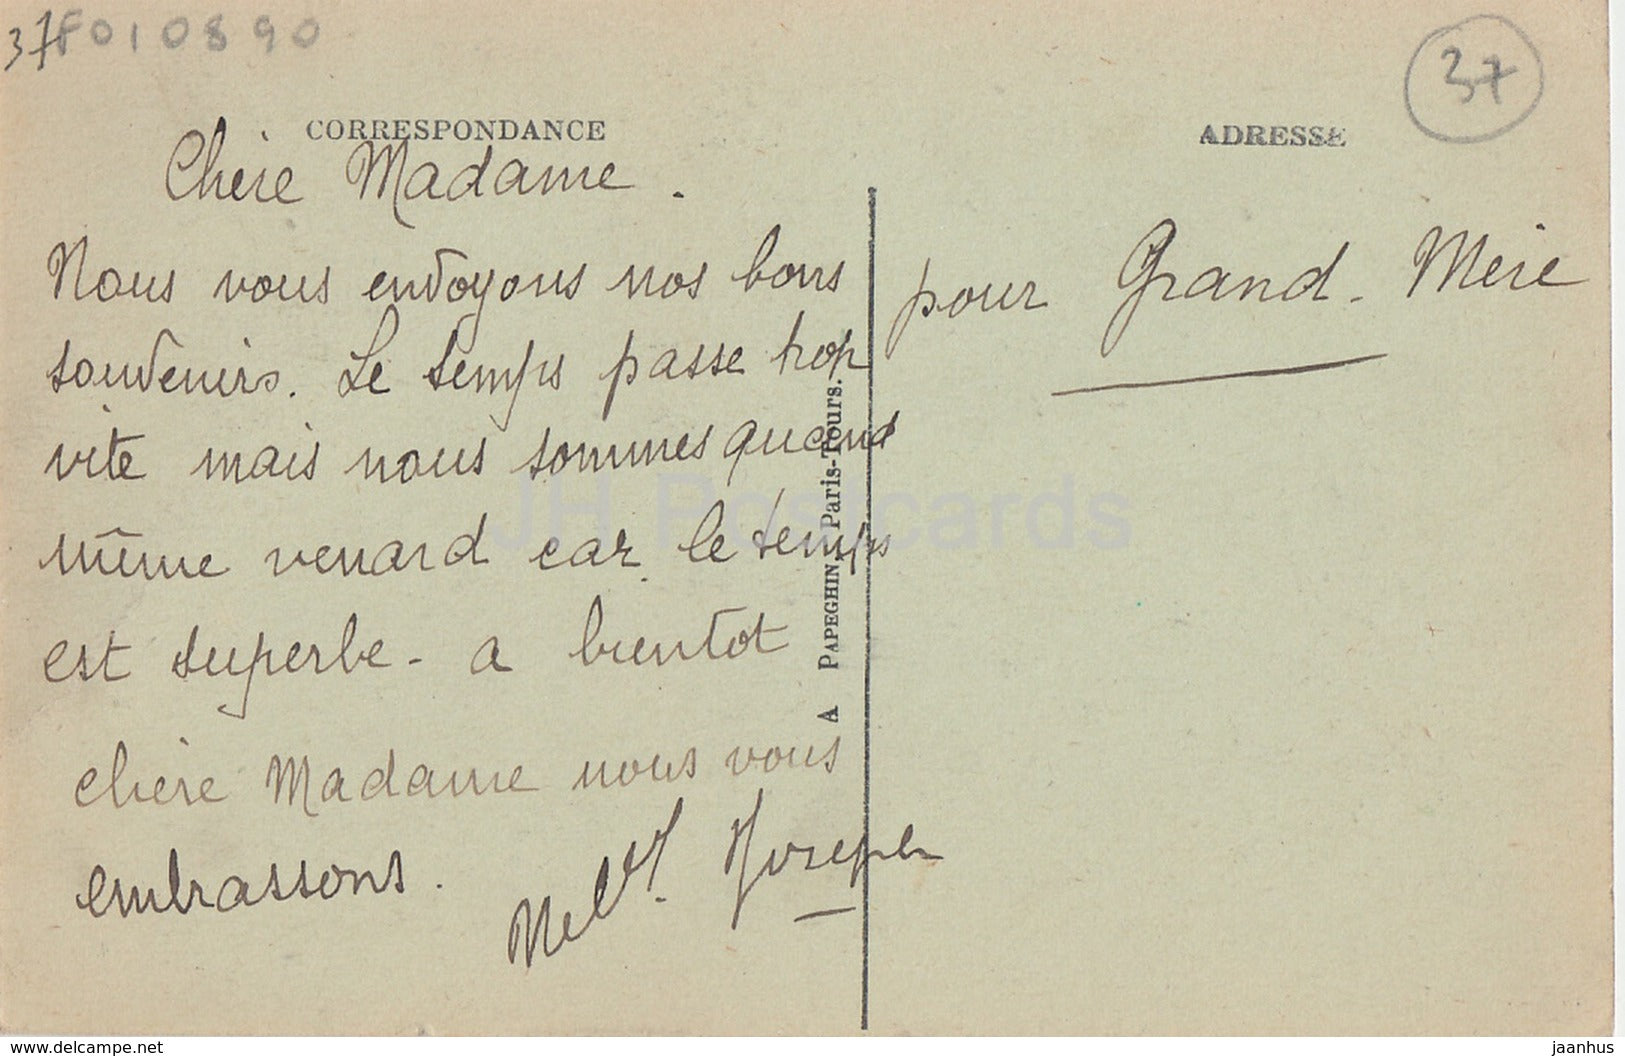 37 F010890
37
CORRESPONDANCE
ADRESSE
Chère Madame.
Nous vous envoyons nos bons
souvenirs. Le temps passe trop
vite mais nous sommes quand
même venard car le temps
est superbe - a bientot
chère Madame nous vous
embrassons.
Joseph
pour Grand-Mère
A PAPEGHIN, Paris-Tours.
JH Postcards
www.delcampe.net
jaanhus